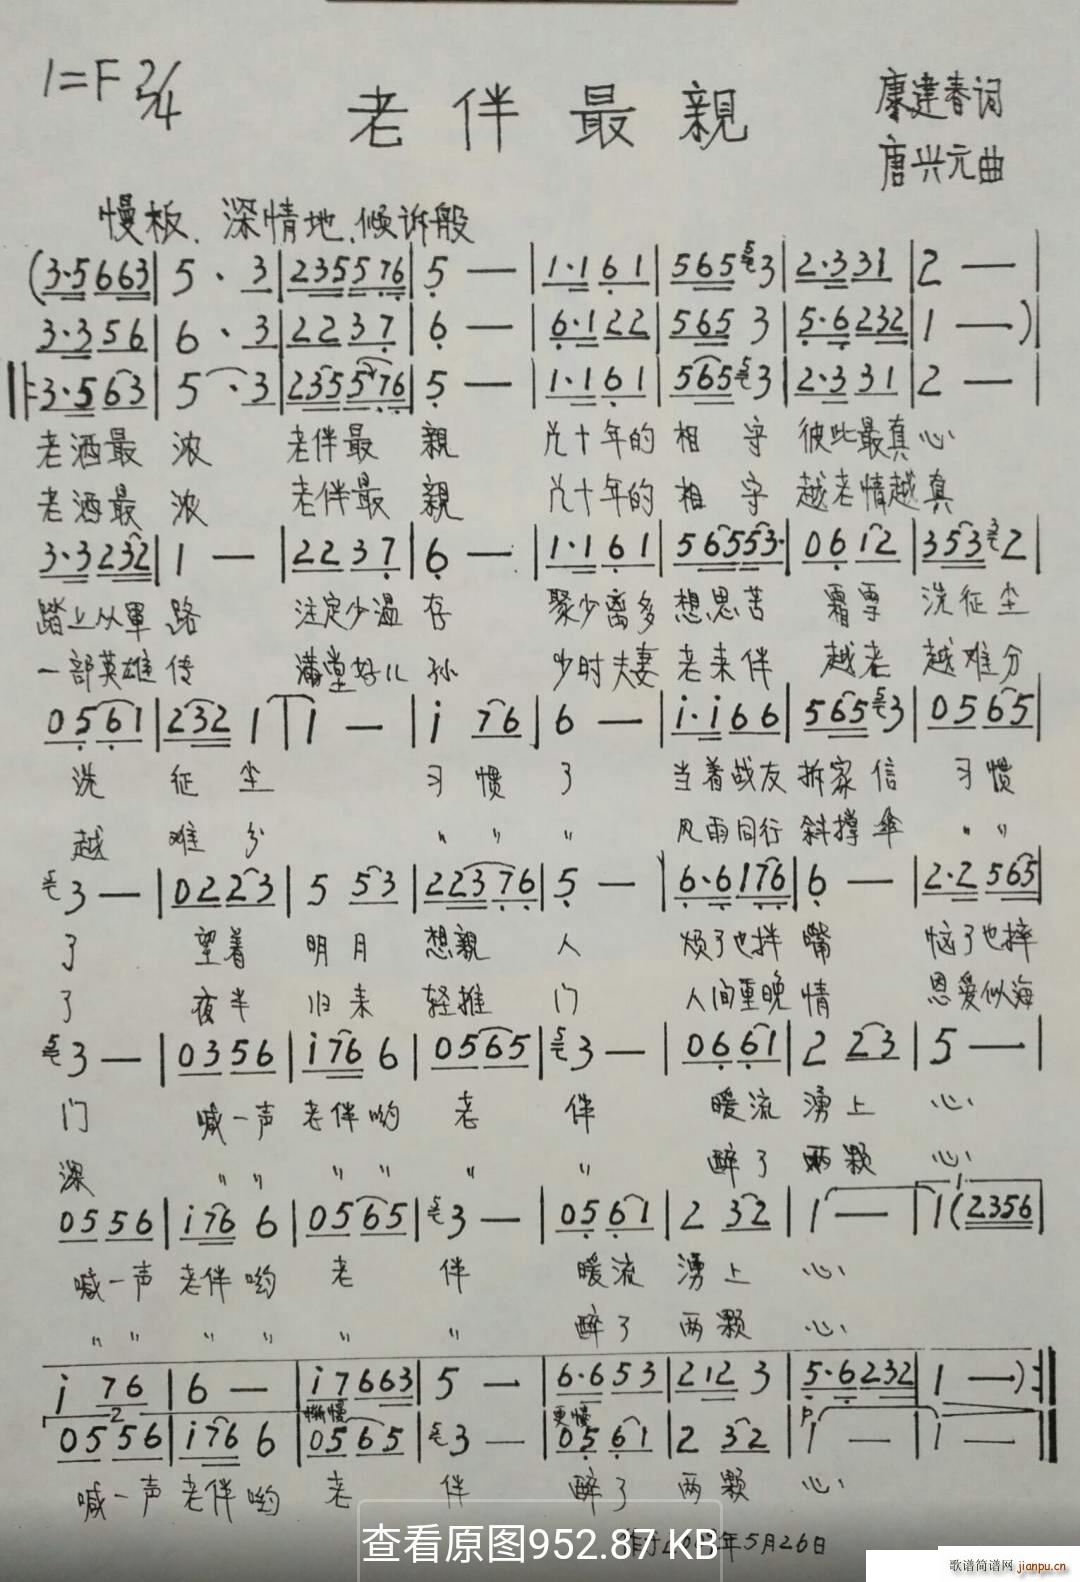 1=F 2/4
老伴最親
康建春词
唐兴元曲
慢板、深情地、倾诉般
(3·5 663 | 5 · 3 | 235576 | 5 — | 1·1 6 1 | 565 3 | 2·3 31 | 2 — |
3·3 56 | 6 · 3 | 22 37 | 6 — | 6·1 22 | 565 3 | 5·6 232 | 1 — ) |
‖: 3·5 63 | 5 · 3 | 235576 | 5 — | 1·1 61 | 565 3 | 2·3 31 | 2 —
老酒最 浓 老伴最 親 几十年的 相 守 彼此最真心
老酒最 浓 老伴最 親 几十年的 相 守 越老情越真
3·3 232 | 1 — | 22 37 | 6 — | 1·1 61 | 56553· | 06 12 | 353 2 |
踏上从軍 路 注定少温 存 聚少离多 想思苦 霜雪 洗征尘
一部英雄 传 满堂好儿 孙 少时夫妻 老来伴 越老 越难分
05 61 | 232 1 | 1 — | i 76 | 6 — | i·i 66 | 565 3 | 05 65 |
洗 征 尘 习 惯 了 当着战友 拆家信 习惯
越 难 分 〃 〃 〃 风雨同行 斜撑伞 〃 〃
3 — | 02 23 | 5 53 | 22376 | 5 — | 6·6 176 | 6 — | 2·2 565 |
了 望着 明月 想親 人 烦了也拌 嘴 恼了也摔
了 夜半 归来 轻推 门 人间重晚 情 恩爱似海
3 — | 03 56 | i76 6 | 05 65 | 3 — | 06 61 | 2 23 | 5 — |
门 喊一声 老伴哟 老 伴 暖流 湧上 心
深 〃 〃 〃 〃 〃 〃 醉了 两颗 心
05 56 | i76 6 | 05 65 | 3 — | 05 61 | 2 32 | 1 — | 1 (2356 |
喊一声 老伴哟 老 伴 暖流 湧上 心
〃 〃 〃 〃 〃 〃 醉了 两颗 心
i 76 | 6 — | i7663 | 5 — | 6·6 53 | 212 3 | 5·6 232 | 1 — ) :‖
渐慢 更慢 p
05 56 | i76 6 | 05 65 | 3 — | 05 61 | 2 32 | 1 — | 1 — ‖
喊一声 老伴哟 老 伴 醉了 两颗 心
年5月26日
查看原图952.87 KB
歌谱简谱网 jianpu.cn